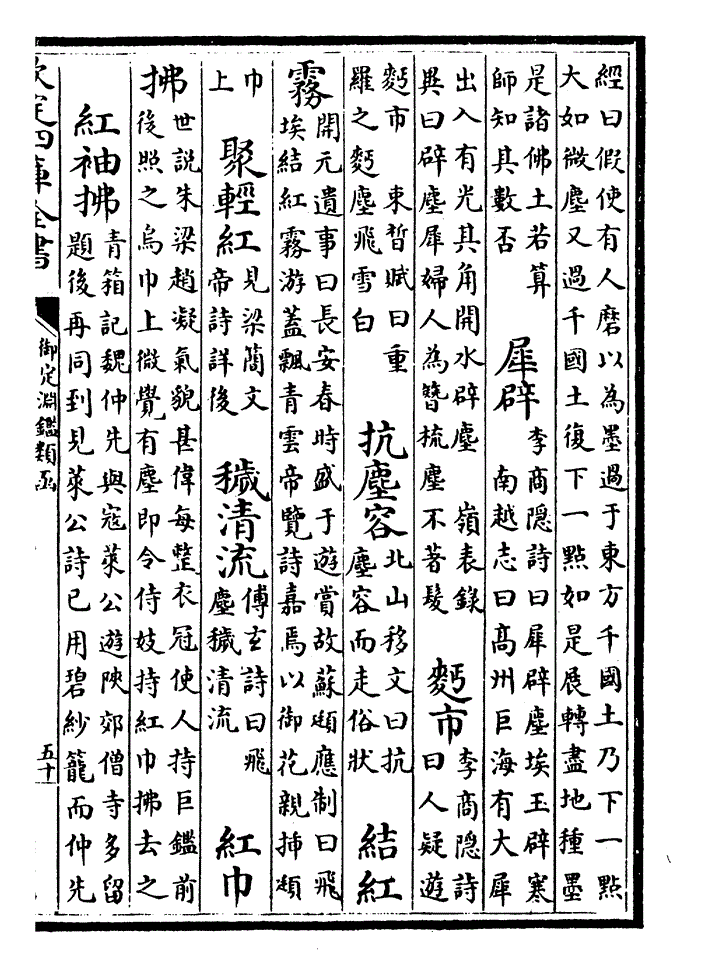 經曰假使有人磨以為墨過于東方千國土乃下一點
大如微塵又過千國土復下一點如是展轉盡地種墨
是諸佛土若算
師知其數否
犀辟
李商隱詩曰犀辟塵埃玉辟寒
南越志曰髙州巨海有大犀
出入有光其角開水辟塵 嶺表錄
異曰辟塵犀婦人為簪梳塵不著髮
麪市
李商隱詩
曰人疑遊
麪市 東晳賦曰重
羅之麪塵飛雪白
抗塵容
北山移文曰抗
塵容而走俗狀
結紅
霧
開元遺事曰長安春時盛于遊賞故蘇頲應制曰飛
埃結紅霧游蓋飄青雲帝覽詩嘉焉以御花親揷頲
巾
上
聚輕紅
見梁簡文
帝詩詳後
穢清流
傅玄詩曰飛
塵穢清流
紅巾
拂
世説朱梁趙凝氣貌甚偉每整衣冠使人持巨鑑前
後照之烏巾上微覺有塵即令侍妓持紅巾拂去之
紅袖拂
青箱記魏仲先與寇萊公遊陜郊僧寺多留
題後再同到見萊公詩已用碧紗籠而仲先
欽定四庫全書
御定淵鑑類函
五十